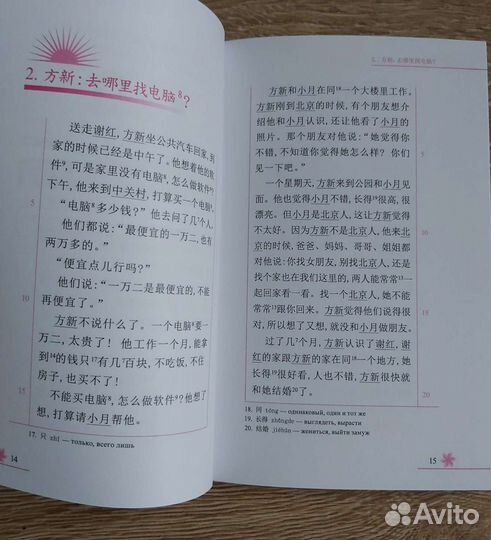 2. 方新：去哪里找电脑⁸？
送走谢红，方新坐公共汽车回家，到
家的时候已经是中午了。他想着他的软
件⁹，可是家里没有电脑⁸，怎么做软件⁹？
下午，他来到中关村，打算买一个电脑⁸。
“电脑⁸多少钱？”他去问了几⁷个人，
他们都说：“最便宜的一万二，也有
两万多的。”
“便宜点儿行吗？”
他们说：“一万二是最便宜的，不能
再便宜了。”
方新不说什么了。一个电脑⁸要一
万二，太贵了！他工作一个月，能拿
到¹⁴的钱只¹⁷有几百块，不吃饭、不住
房子，也买不了！
不能买电脑⁸，怎么做软件⁹？他想了
想，打算请小月帮他。
5
10
15
17. 只 zhǐ — только, всего лишь
14
2. 方新：去哪里找电脑？
方新和小月在同¹⁸一个大楼里工作。
方新刚到北京的时候，有个朋友想介
绍他和小月认识，还让他看了小月的
照片。那个朋友对他说：“她觉得你
不错，不知道你觉得她怎么样？你们
见一下吧。”
一个星期天，方新来到公园和小月见
面。他也觉得小月不错，长得¹⁹很高，很
漂亮。但小月是北京人，这让方新觉得
不太好。因为方新不是北京人，他来北
京的时候，爸爸、妈妈、哥哥、姐姐都
对他说：你找女朋友，别找北京人，还是
找个家也在我们这里的，两人能常常¹³一
起回家看一看。找一个北京人，她不能
常常¹³跟你回来。方新觉得他们说得很
对，所以想了又想，就没和小月做朋友。
过了几⁷个月，方新认识了谢红，谢
红的家跟方新的家在同¹⁸一个地方，她
长得¹⁹很好看，人也不错，方新很快就
和她结婚²⁰了。
5
10
15
20
18. 同 tóng — одинаковый, один и тот же
19. 长得 zhǎngde — выглядеть, вырасти
20. 结婚 jiéhūn — жениться, выйти замуж
15
Avito